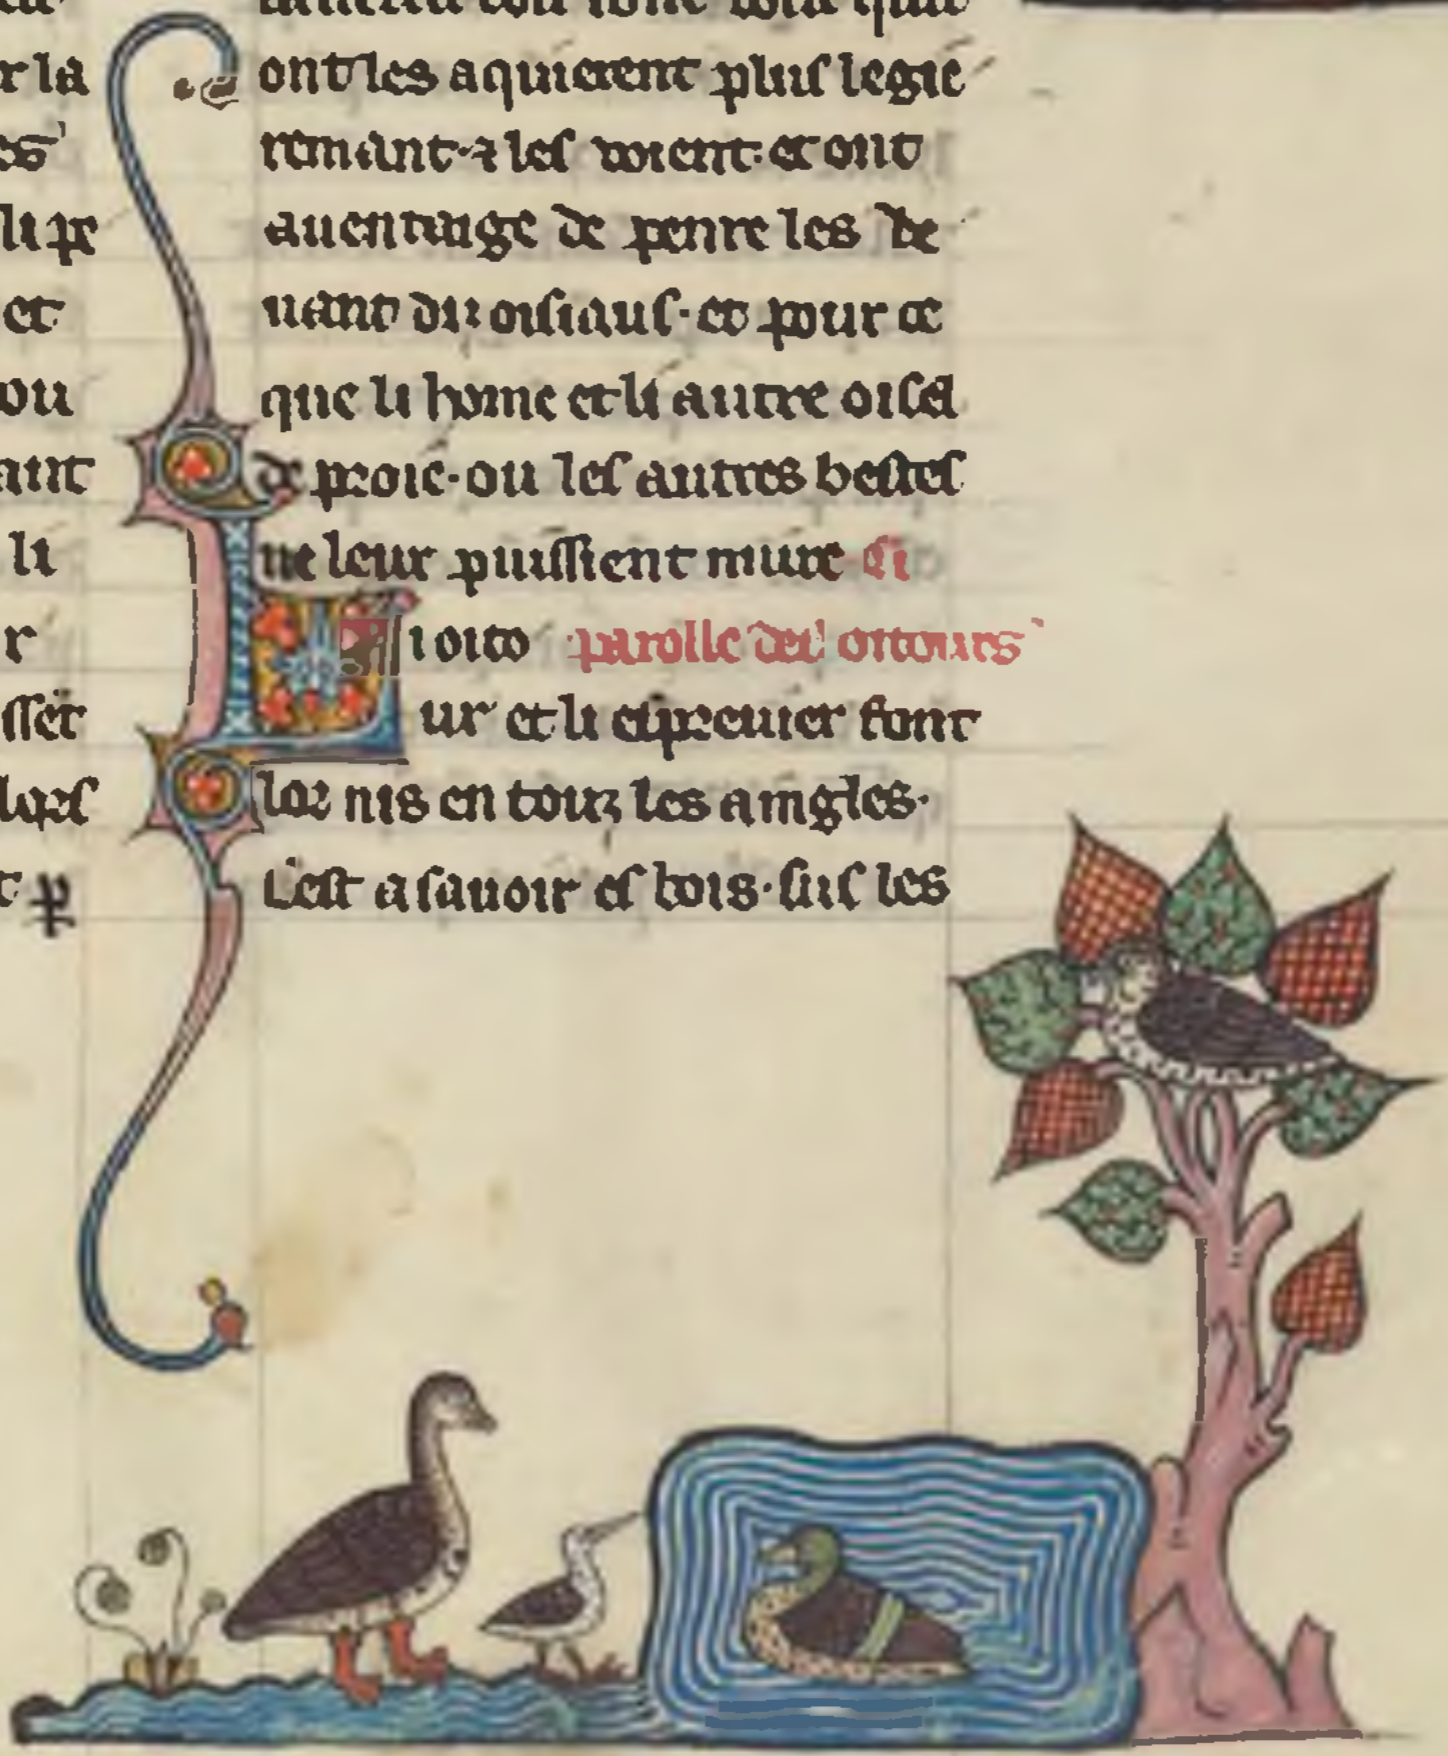 r la
es
li pr
et
ou
ant
li
r
ssēt
lors
ont les aquierent plus legie
remant · ⁊ les voient · et ont
auentaige de penre les de
uant diz oisiaus · et pour ce
que li home et li autre oisel
de proie · ou les autres bestes
ne leur puissent nuire ci
Li oito parolle des ostours
ur et li esprevier font
lor nis en touz les aingles ·
Cest a sauoir es bois · sus les